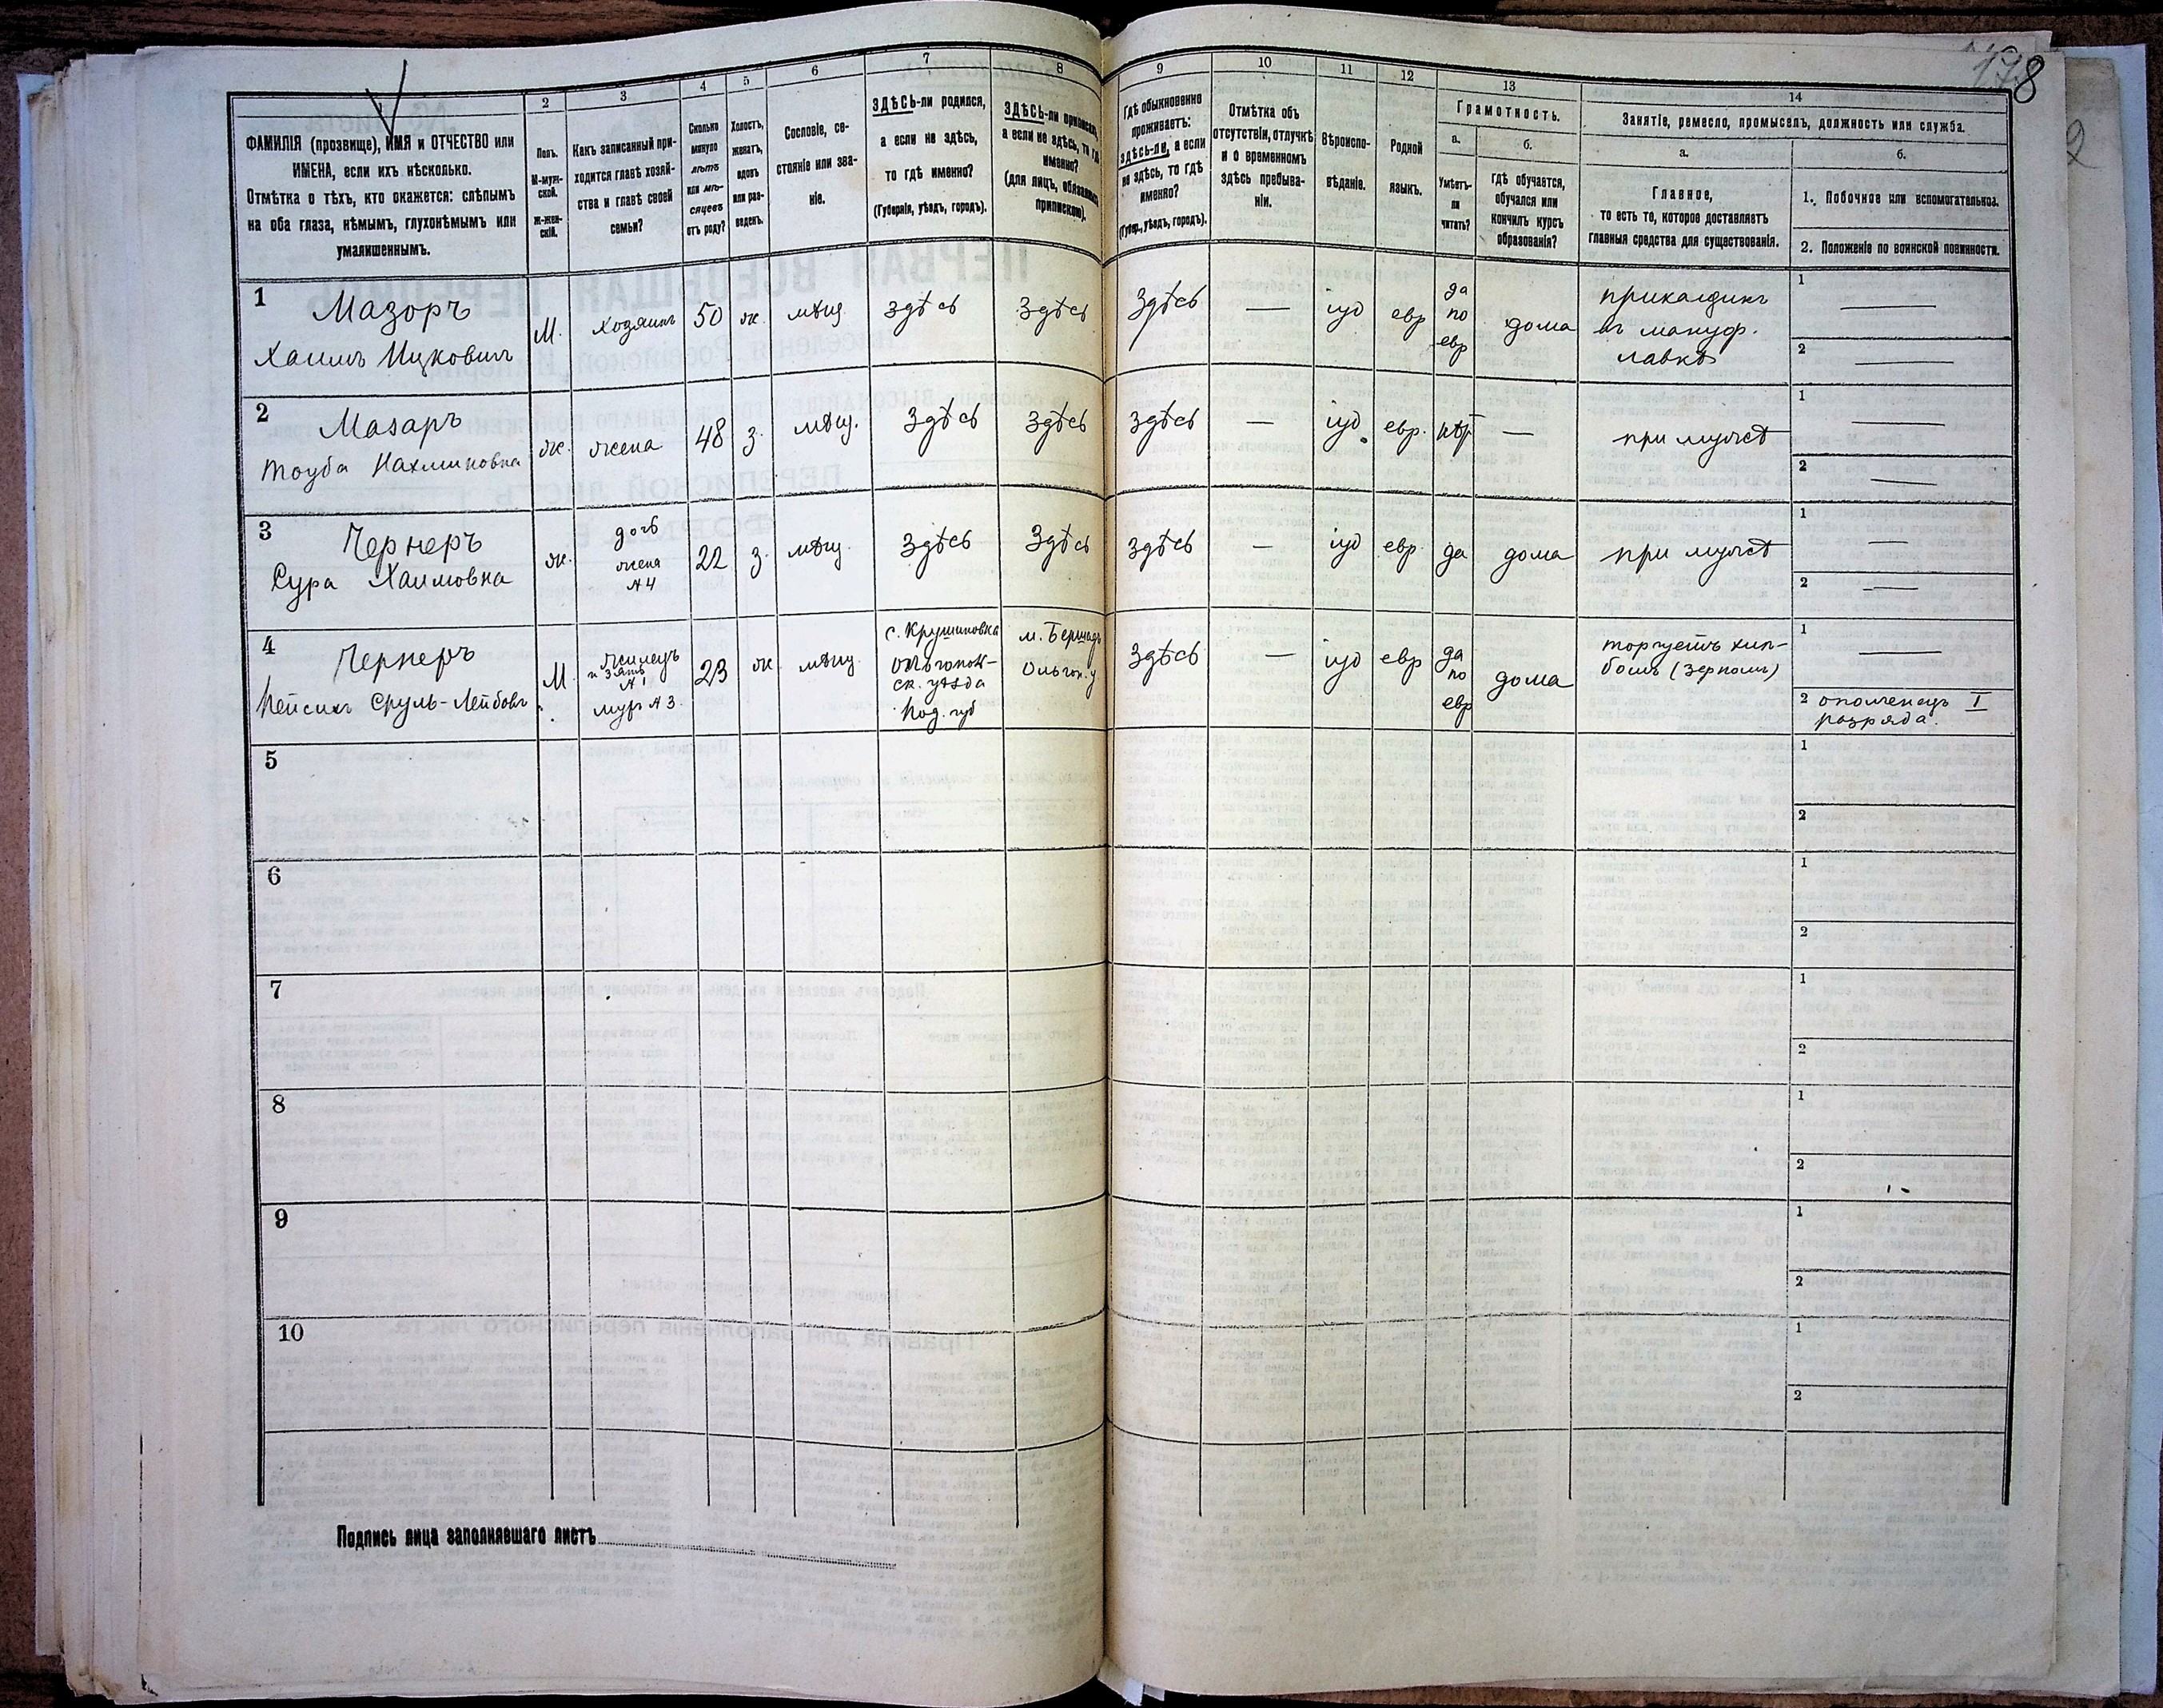 178
1
ФАМИЛІЯ (прозвище), ИМЯ и ОТЧЕСТВО или
ИМЕНА, если ихъ нѣсколько.
Отмѣтка о тѣхъ, кто окажется: слѣпымъ
на оба глаза, нѣмымъ, глухонѣмымъ или
умалишеннымъ.
2
Полъ.
М-муж-
ской.
Ж-жен-
скій.
3
Какъ записанный при-
ходится главѣ хозяй-
ства и главѣ своей
семьи?
4
Сколько
минуло
лѣтъ
или мѣ-
сяцевъ
отъ роду?
5
Холостъ,
женатъ,
вдовъ
или раз-
веденъ.
6
Сословіе, со-
стояніе или зва-
ніе.
7
ЗДѢСЬ-ли родился,
а если не здѣсь,
то гдѣ именно?
(Губернія, уѣздъ, городъ).
8
ЗДѢСЬ-ли приписанъ,
а если не здѣсь, то гдѣ
именно?
(для лицъ, обязанныхъ
припискою).
9
Гдѣ обыкновенно
проживаетъ:
здѣсь-ли, а если
не здѣсь, то гдѣ
именно?
(Губер., уѣздъ, городъ).
10
Отмѣтка объ
отсутствіи, отлучкѣ
и о временномъ
здѣсь пребыва-
ніи.
11
Вѣроиспо-
вѣданіе.
12
Родной
языкъ.
13
Грамотность.
а.
Умѣетъ-
ли
читать?
б.
гдѣ обучается,
обучался или
кончилъ курсъ
образованія?
14
Занятіе, ремесло, промыселъ, должность или служба.
а.
Главное,
то есть то, которое доставляетъ
главныя средства для существованія.
б.
1. Побочное или вспомогательное.
2. Положеніе по воинской повинности.
1
Мазоръ
Хаимъ Ицковичъ
М.
хозяинъ
50
ж.
мѣщ.
здѣсь
здѣсь
здѣсь
—
іуд
евр
да
по
евр
дома
прикащикъ
въ мануф.
лавкѣ
1 —
2 —
2
Мазаръ
Тоуба Нахмиковна
ж.
жена
48
з.
мѣщ.
здѣсь
здѣсь
здѣсь
—
іуд.
евр.
нѣт
—
при мужѣ
1 —
2 —
3
Чернеръ
Сура Хаимовна
ж.
дочь
жена
№4
22
з.
мѣщ.
здѣсь
здѣсь
здѣсь
—
іуд
евр.
да
дома
при мужѣ
1 —
2 —
4
Чернеръ
Пейсихъ Сруль-Лейбовъ
М.
жилецъ
и зять
№1
муж №3.
23
ж
мѣщ
с. Крушиновка
Ольгопол-
ск. уѣзда
Под. губ
м. Бершадь
Ольгоп. у
здѣсь
—
іуд
евр
да
по
евр
дома
торгуетъ хлѣ-
бомъ (зерномъ)
1 —
2 ополченецъ I
разряда.
5
1
2
6
1
2
7
1
2
8
1
2
9
1
2
10
1
2
Подпись лица заполнявшаго листъ